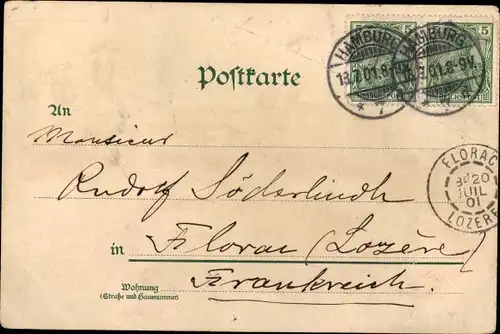 5 5
HAMBURG HAMBURG
18.7.01.8-9V.
* 7 *
Postkarte
An
Monsieur
FLORAC
20
JUIL
01
LOZERE
Rudolf Söderlindh
in Florac (Lozère)
Frankreich.
Wohnung
(Straße und Hausnummer)